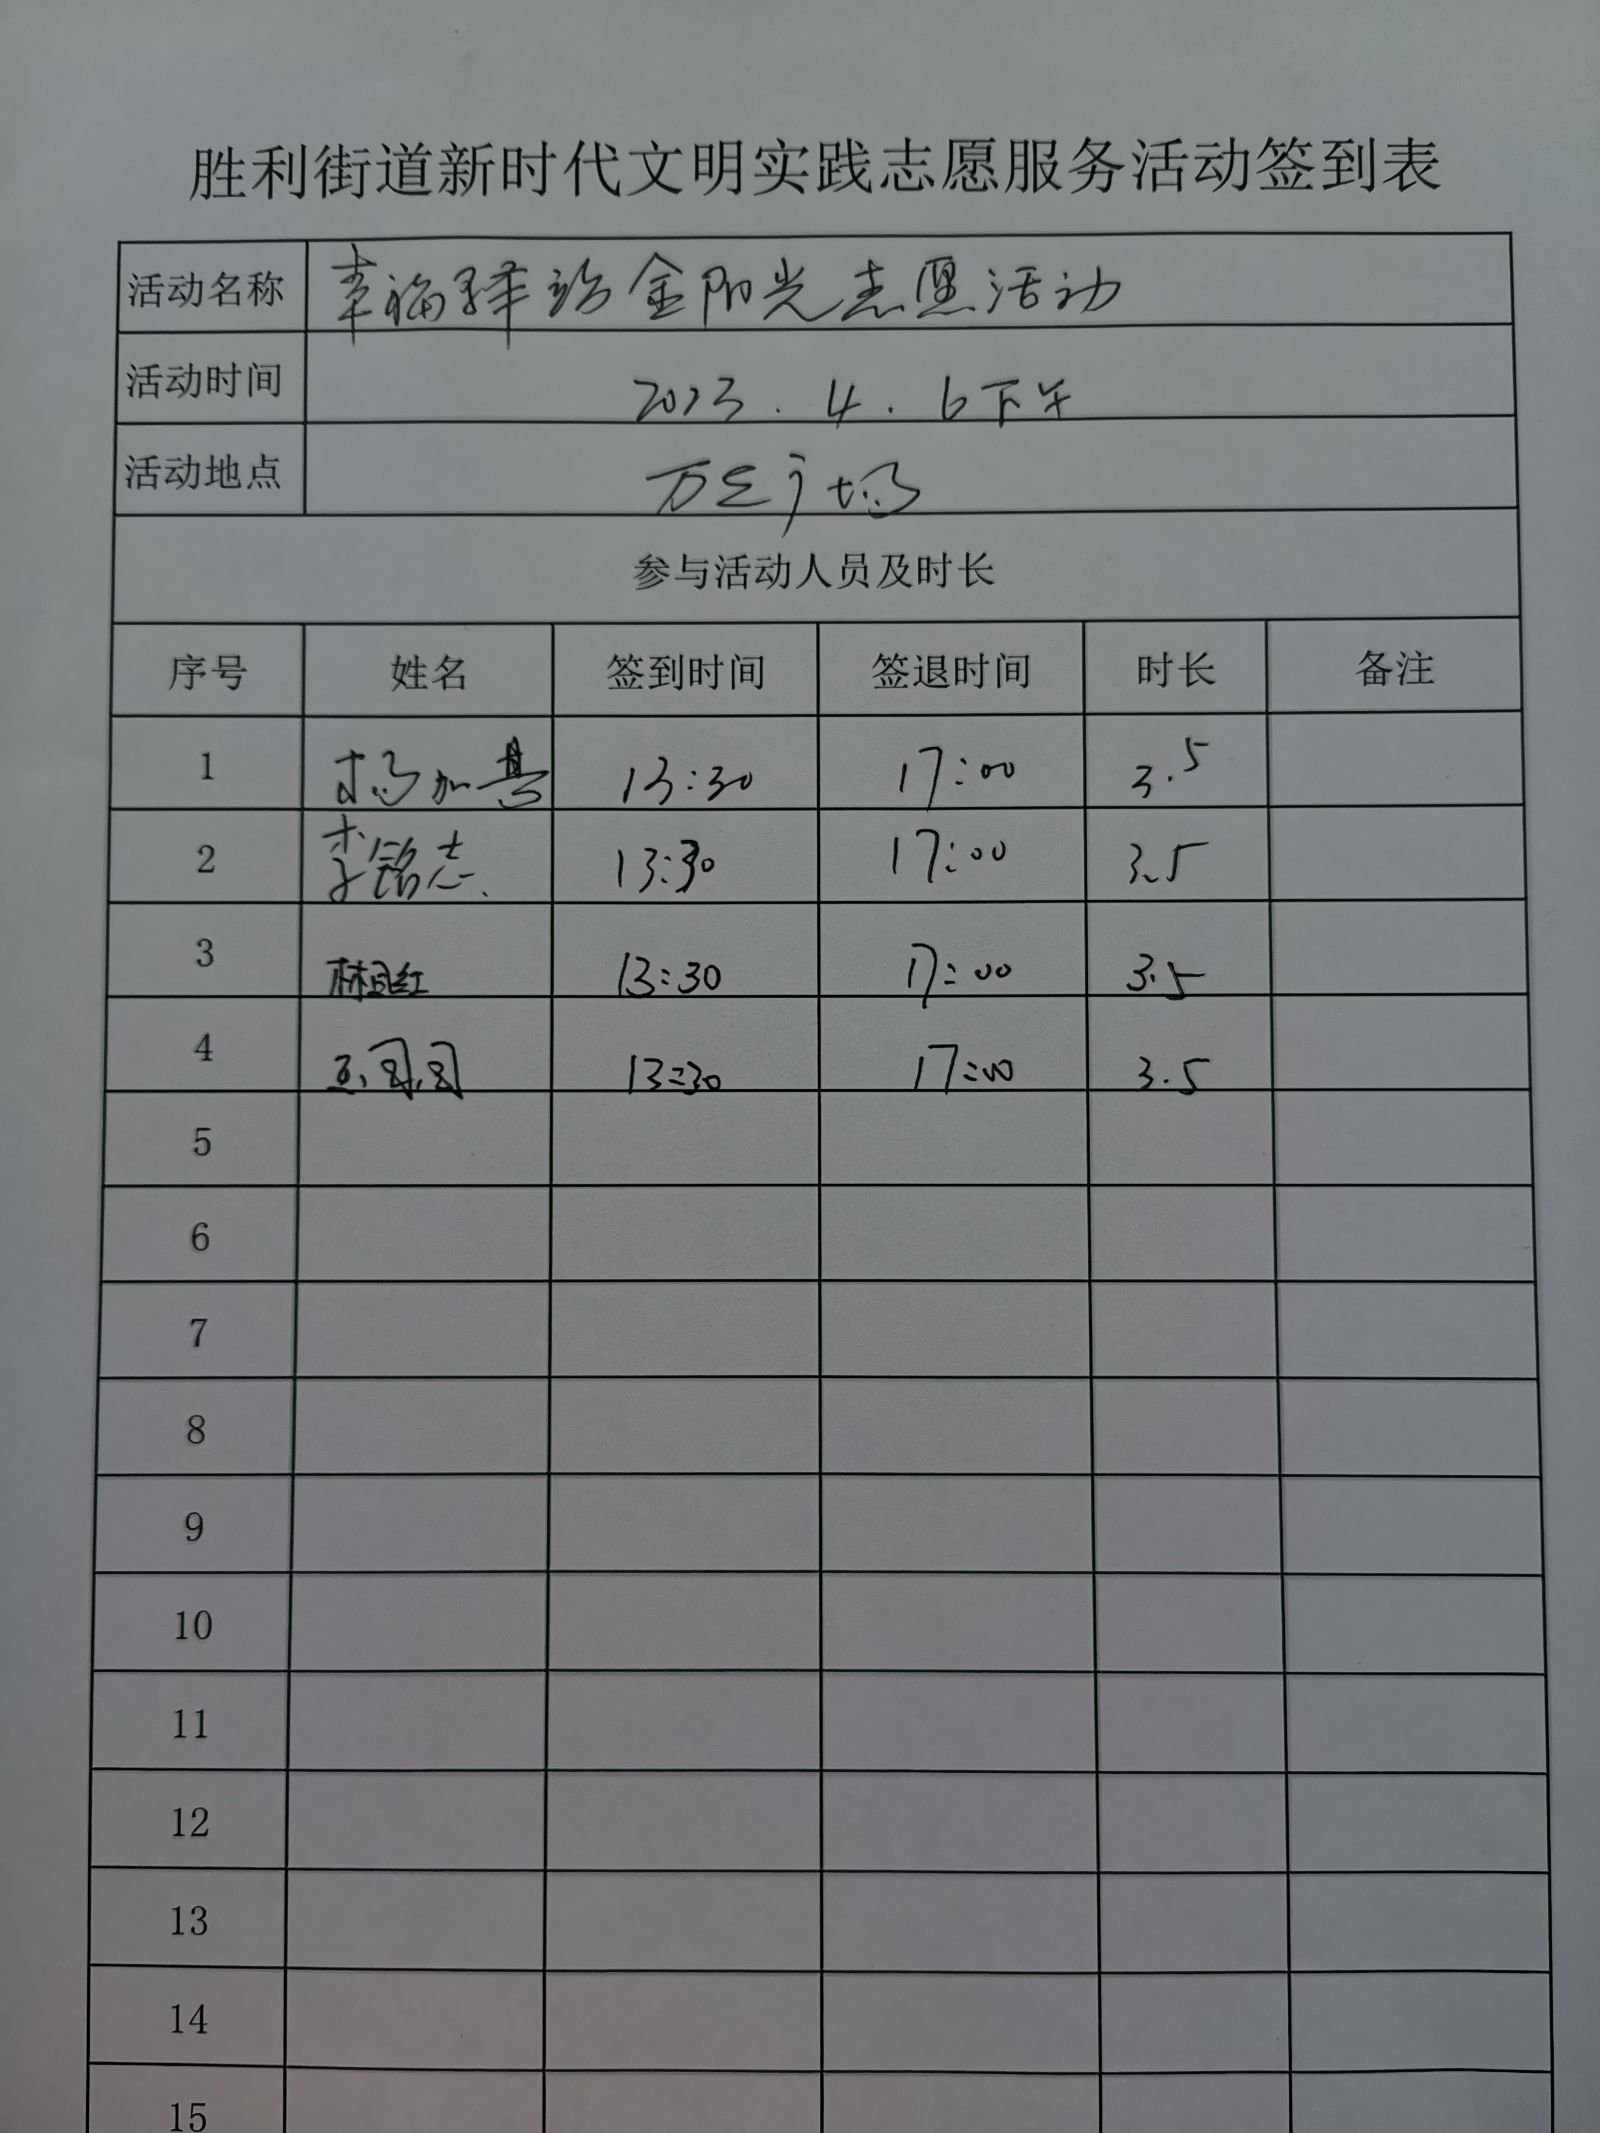 胜利街道新时代文明实践志愿服务活动签到表
活动名称 幸福驿站金阳光志愿活动
活动时间 2023.4.6下午
活动地点 万达广场
参与活动人员及时长
序号 姓名 签到时间 签退时间 时长 备注
1 13:30 17:00 3.5
2 李铭志 13:30 17:00 3.5
3 13:30 17:00 3.5
4 13:30 17:00 3.5
5
6
7
8
9
10
11
12
13
14
15